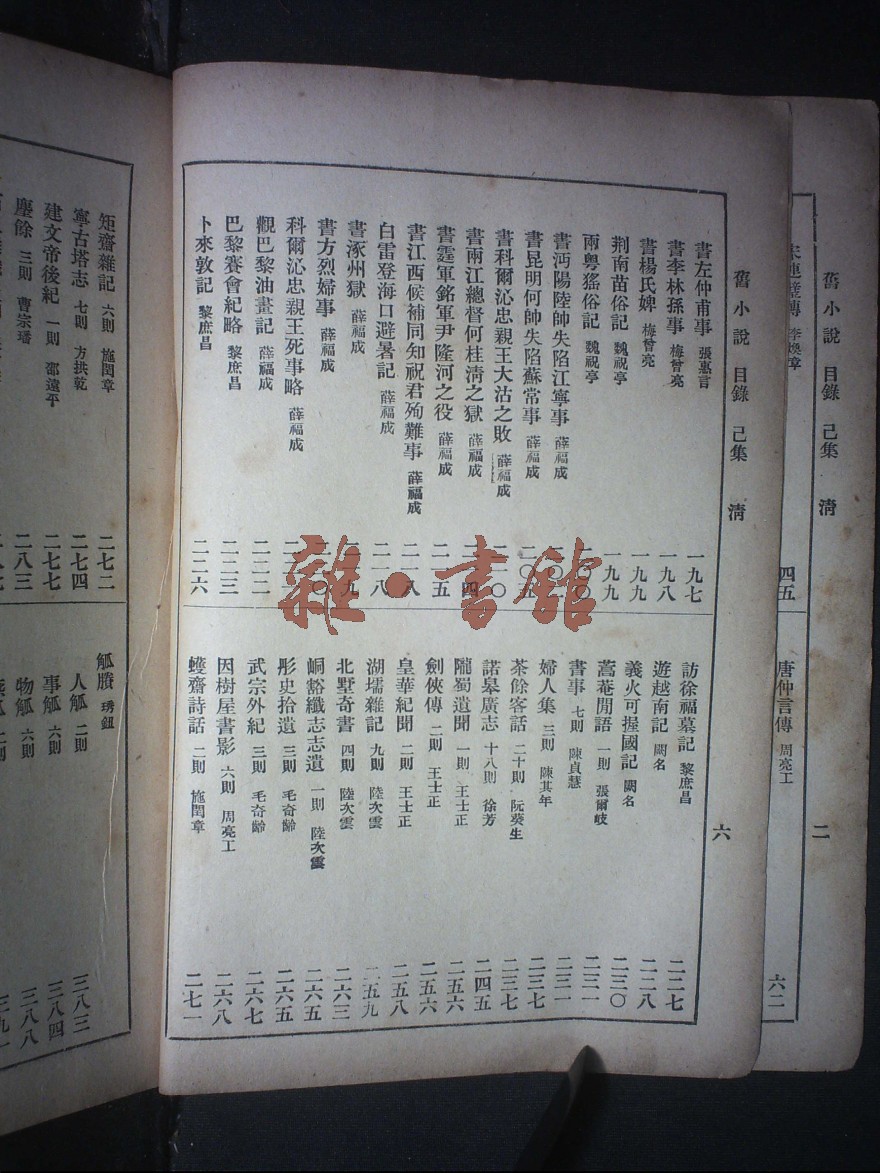 舊小說 目錄 己集 清
六
書左仲甫事 張惠言 一九七
書李林孫事 梅曾亮 一九八
書楊氏婢 梅曾亮 一九九
荆南苗俗記 魏祝亭 一九九
兩粤猺俗記 魏祝亭
書沔陽陸帥失陷江寧事 薛福成
書昆明何帥失陷蘇常事 薛福成
書科爾沁忠親王大沽之敗 薛福成
書兩江總督何桂清之獄 薛福成
書霆軍銘軍尹隆河之役 薛福成 二一五
書江西候補同知祝君殉難事 薛福成 二一八
白雷登海口避暑記 薛福成 二一八
書涿州獄 薛福成
書方烈婦事 薛福成
科爾沁忠親王死事略 薛福成
觀巴黎油畫記 薛福成 二二二
巴黎賽會紀略 黎庶昌 二二三
卜來敦記 黎庶昌 二二六
訪徐福墓記 黎庶昌 二二七
遊越南記 闕名 二二八
義火可握國記 闕名 二三〇
蒿菴閒語 一則 張爾岐 二三一
書事 七則 陳貞慧 二三一
婦人集 三則 陳其年 二三七
茶餘客話 二十則 阮葵生 二三七
諾皋廣志 十八則 徐芳 二四五
隴蜀遺聞 一則 王士正 二五六
劍俠傳 二則 王士正 二五六
皇華紀聞 二則 王士正 二五八
湖壖雜記 九則 陸次雲 二五九
北墅奇書 四則 陸次雲 二六三
峒谿纖志志遺 一則 陸次雲 二六五
彤史拾遺 三則 毛奇齡 二六五
武宗外紀 三則 毛奇齡 二六七
因樹屋書影 六則 周亮工 二六八
蠖齋詩話 二則 施閏章 二七一
矩齋雜記 六則 施閏章 二七二
寧古塔志 七則 方拱乾 二七四
建文帝後紀 一則 邵遠平 二七七
塵餘 三則 曹宗璠 二八三
觚賸 琇鈕
人觚 二則 三八三
事觚 六則 三八四
物觚 六則 三八八
舊小說 目錄 己集 清
二
李煥章 四五
唐仲言傳 周亮工 六二
雜·書館